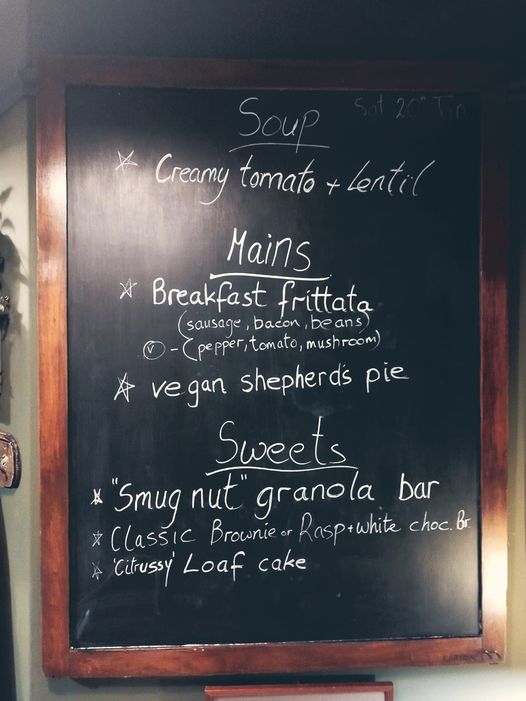 Sat 20th Jan
Soup
Creamy tomato + Lentil
Mains
Breakfast frittata
(sausage, bacon, beans)
V - (pepper, tomato, mushroom)
vegan shepherd's pie
Sweets
"Smug nut" granola bar
Classic Brownie or Rasp + white choc. Br
'Citrussy' Loaf cake